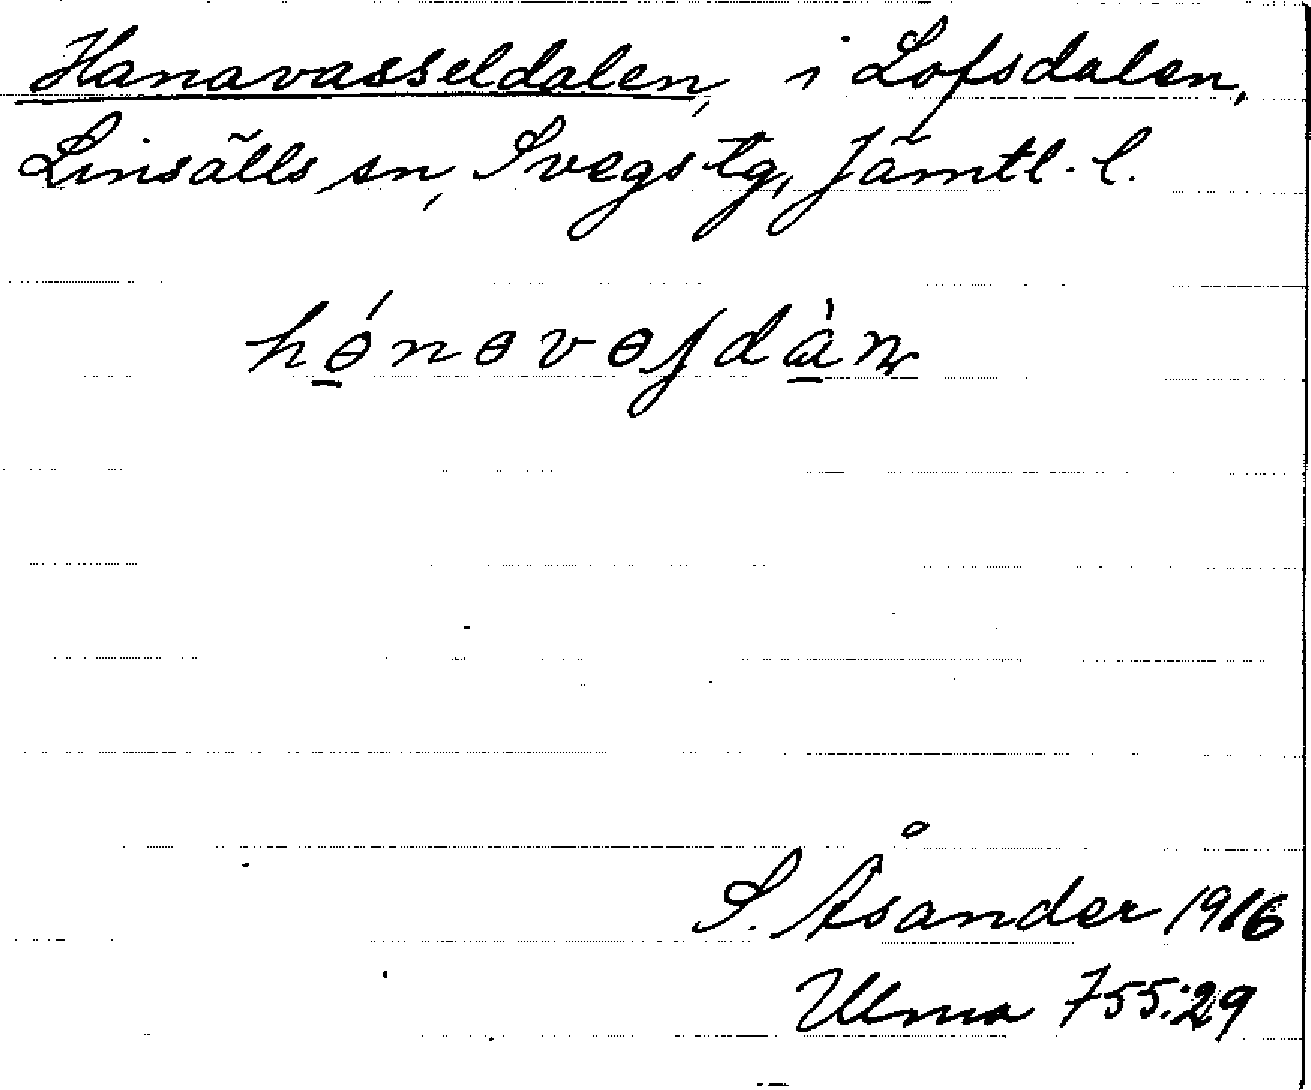 Hanavasseldalen, i Lofsdalen,
Linsälls sn, Svegs tg, Jämtl. l.
hɵ́nɵvɵʃdàn
S. Åsander 1916
Ulma 755:29